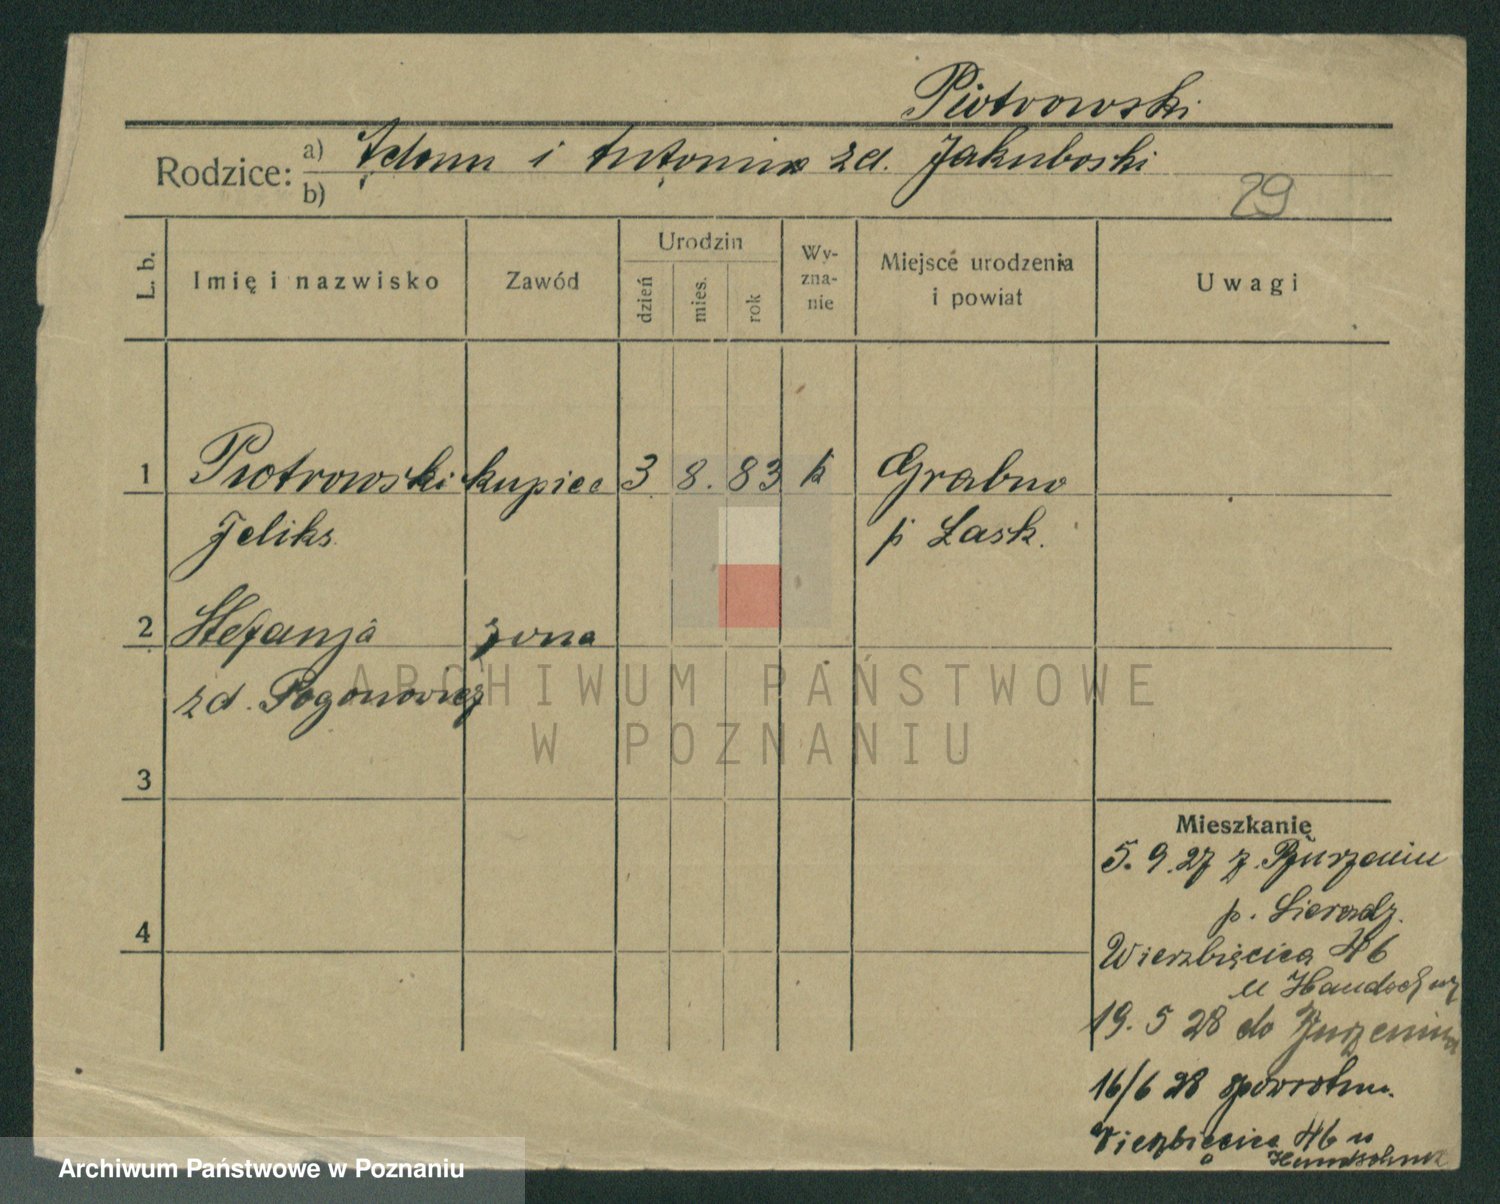 Piotrowski
Rodzice: a) Adam i Antonina zd. Jakuboski
b)
29
L. b.
Imię i nazwisko
Zawód
Urodzin
dzień
mies.
rok
Wy-
zna-
nie
Miejsce urodzenia
i powiat
Uwagi
1 Piotrowski kupiec 3 8. 83 k Grabno
Feliks p Łask.
2 Stefanja żona
zd. Pogonowicz
3
4
ARCHIWUM PAŃSTWOWE
W POZNANIU
Mieszkanie
5. 9. 27 z
p. Sieradz.
Wierzbięcica 46
u
19. 5 28 do
16/6 28 spowrotem.
Wierzbięcica 46 u
Archiwum Państwowe w Poznaniu